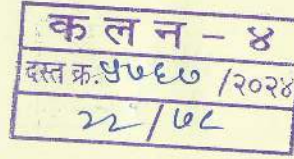 क ल न - ४
दस्त क्र. ५७६७ /२०२४
२२/७८